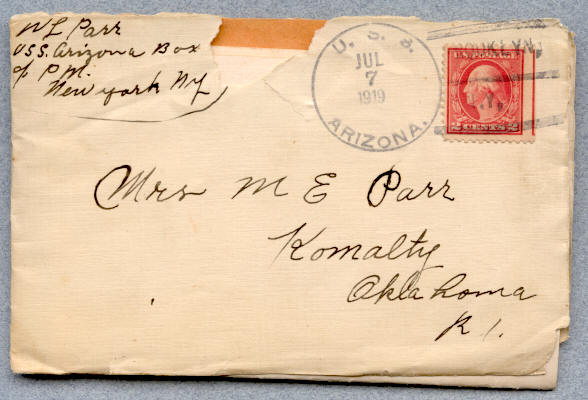 W L Parr
U.S.S. Arizona Box
c/o P.M.
New york NY
U. S. S.
JUL
7
1919
ARIZONA.
BROOKLYN,
N.Y.
U.S. POSTAGE
2 CENTS 2
Mrs M E Parr
Komalty
Oklahoma
R 1.